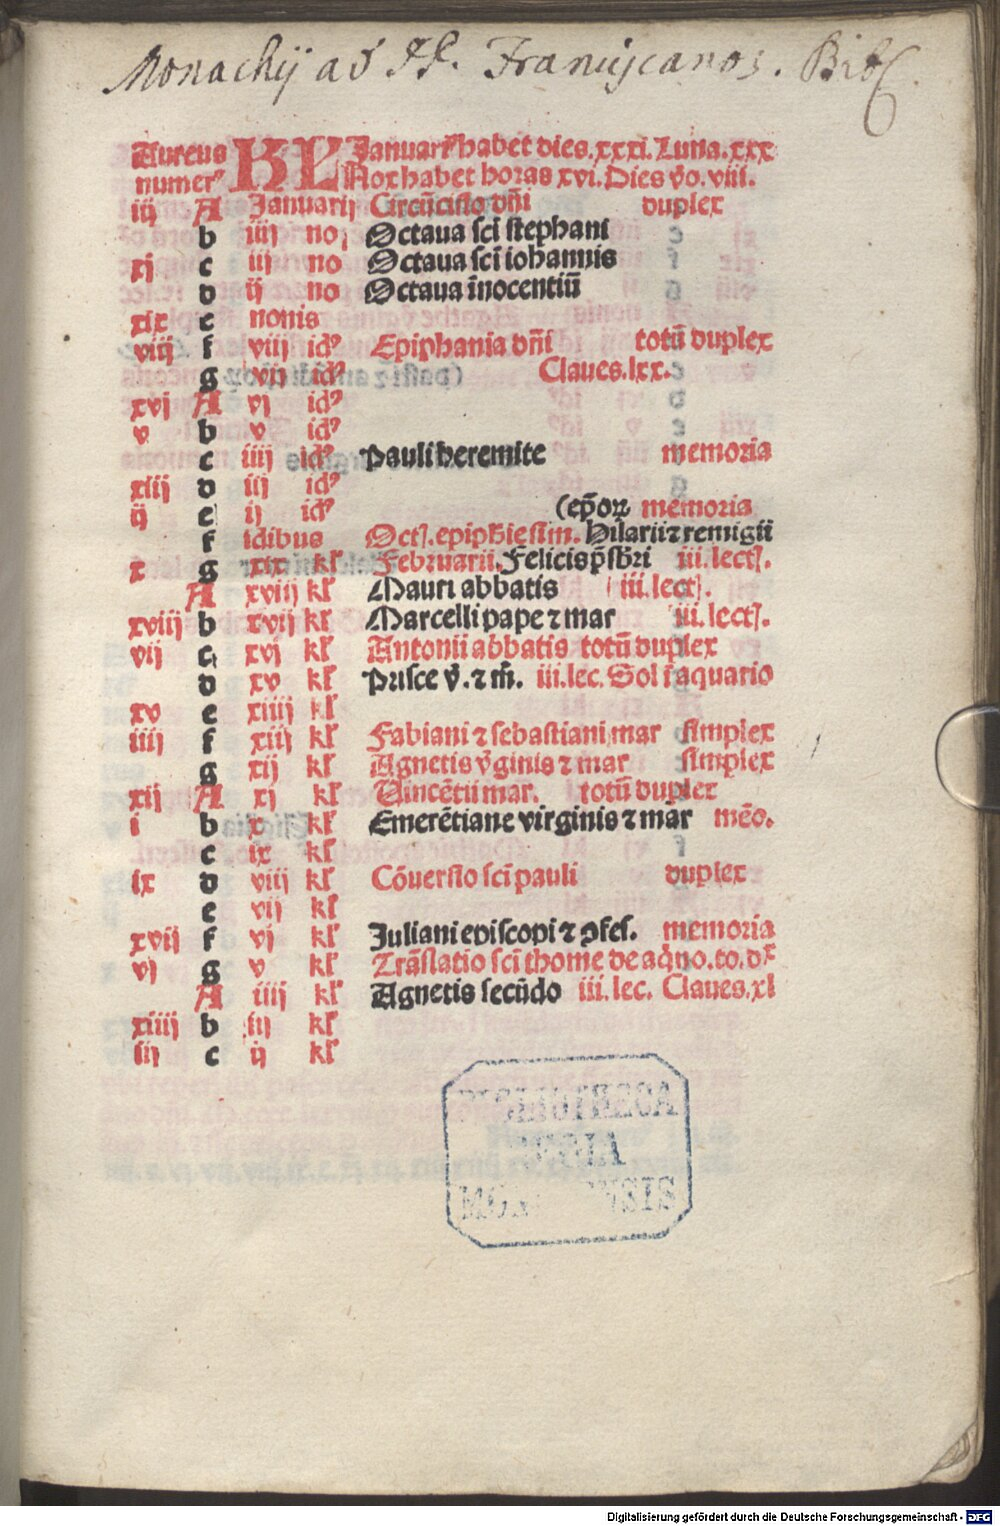 Monachij ad FF. Franciscanos. Bibl.
Aureus KL Januari9 habet dies. xxxi. Luna. xxx
numer9 Nox habet horas xvi. Dies v̄o. viii.
iij A Januarij Circūcisio dn̄i duplex
b iiij no Octaua scī stephani
xj c iij no Octaua scī iohannis
d ij no Octaua īnocentiū
xix e nonis
viij f viij id9 Epiphania dn̄i totū duplex
g vij id9 Claues. lxx.
xvj A vj id9
v b v id9
c iiij id9 Pauli heremite memoria
xiij d iij id9
ij e ij id9 (ep̄oꝝ memoria
f idibus Oct. epiphīe sim. Hilarii ⁊ remigii
x g xix kl' Februarii. Felicis p̄sbri iii. lect.
A xviij kl' Mauri abbatis iii. lect.
xviij b xvij kl' Marcelli pape ⁊ mar iii. lect.
vij c xvj kl' Antonii abbatis totū duplex
d xv kl' Prisce v̄. ⁊ m̄. iii. lec. Sol ī aquario
xv e xiiij kl'
iiij f xiij kl' Fabiani ⁊ sebastiani mar simplex
g xij kl' Agnetis v̄ginis ⁊ mar simplex
xij A xj kl' Vincētii mar. totū duplex
i b x kl' Emerētiane virginis ⁊ mar mēo.
c ix kl'
ix d viij kl' Cōuersio scī pauli duplex
e vij kl'
xvij f vj kl' Juliani episcopi ⁊ ꝯfes. memoria
vj g v kl' Trāslatio scī thome de aq̄no. to. dx
A iiij kl' Agnetis secūdo iii. lec. Claues. xl
xiiij b iij kl'
iij c ij kl'
BIBLIOTHECA
REGIA
MONACENSIS
Digitalisierung gefördert durch die Deutsche Forschungsgemeinschaft - DFG